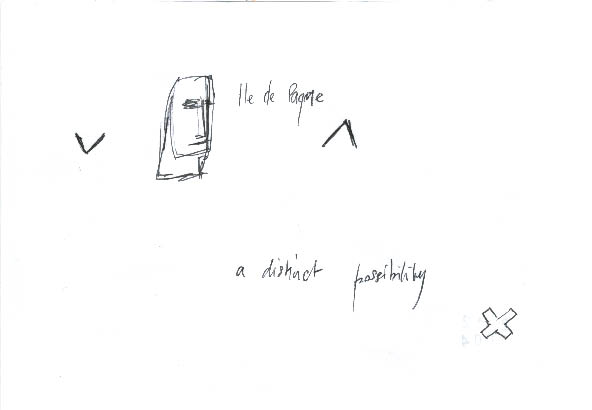 Ile de Paque
a distinct possibility